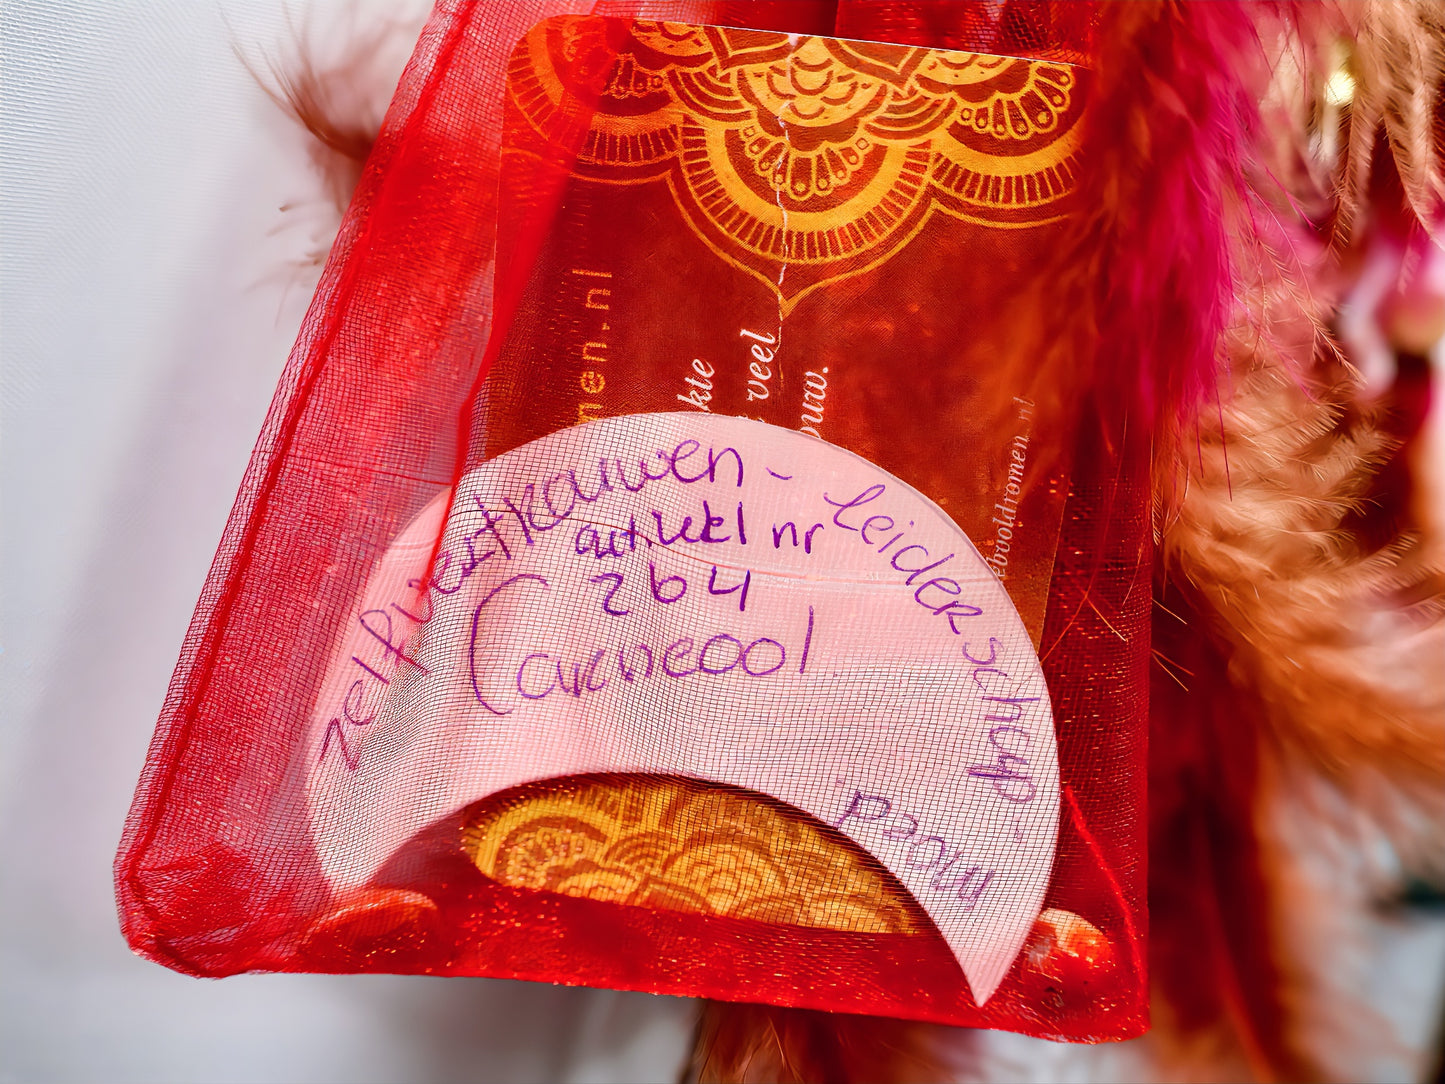 en.nl
kte
veel
ouw.
ebvoldromen.nl
zelfvertrouwen - Leiderschap - moed
artikel nr
264
(carneool